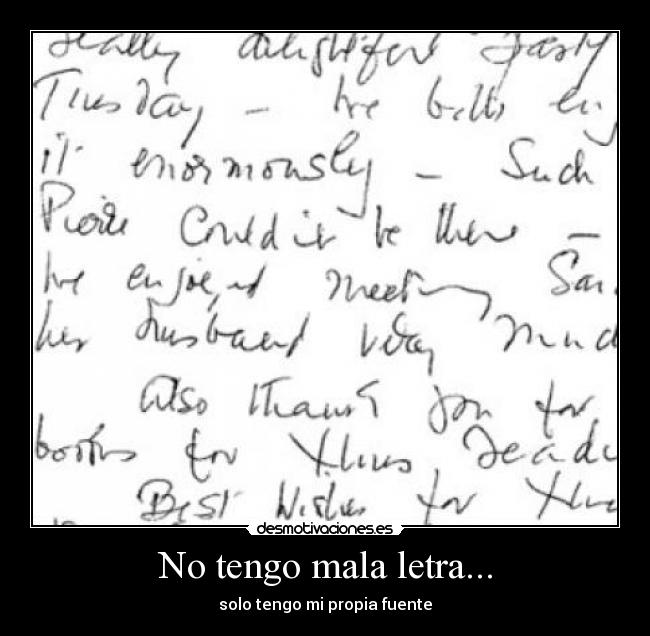 really delightful party
Tuesday - We both en
it enormously - Such
Pierre Couldn't be there -
We enjoyed meeting Sar
her husband very much
Also thank you for
books for Xmas
Best Wishes for
desmotivaciones.es
No tengo mala letra...
solo tengo mi propia fuente